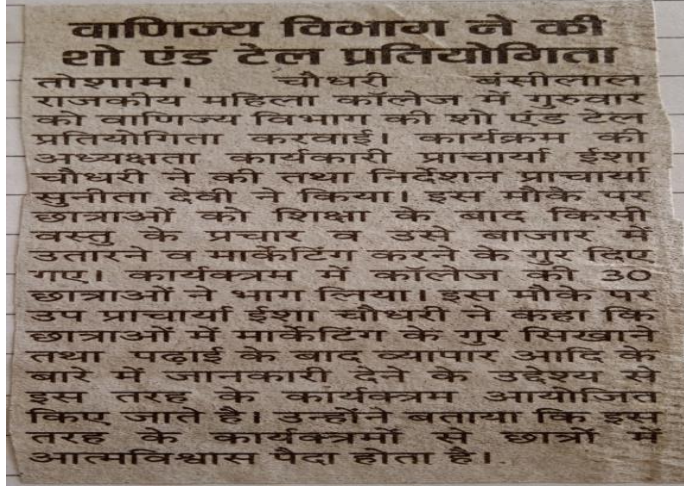 वाणिज्य विभाग ने की
शो एंड टेल प्रतियोगिता
तोशाम। चौधरी बंसीलाल
राजकीय महिला कॉलेज में गुरुवार
को वाणिज्य विभाग की शो एंड टेल
प्रतियोगिता करवाई। कार्यक्रम की
अध्यक्षता कार्यकारी प्राचार्या ईशा
चौधरी ने की तथा निर्देशन प्राचार्या
सुनीता देवी ने किया। इस मौके पर
छात्राओं को शिक्षा के बाद किसी
वस्तु के प्रचार व उसे बाजार में
उतारने व मार्केटिंग करने के गुर दिए
गए। कार्यक्त्रम में कॉलेज की 30
छात्राओं ने भाग लिया। इस मौके पर
उप प्राचार्या ईशा चौधरी ने कहा कि
छात्राओं में मार्केटिंग के गुर सिखाने
तथा पढ़ाई के बाद व्यापार आदि के
बारे में जानकारी देने के उद्देश्य से
इस तरह के कार्यक्त्रम आयोजित
किए जाते है। उन्होंने बताया कि इस
तरह के कार्यक्त्रमों से छात्रों में
आत्मविश्वास पैदा होता है।